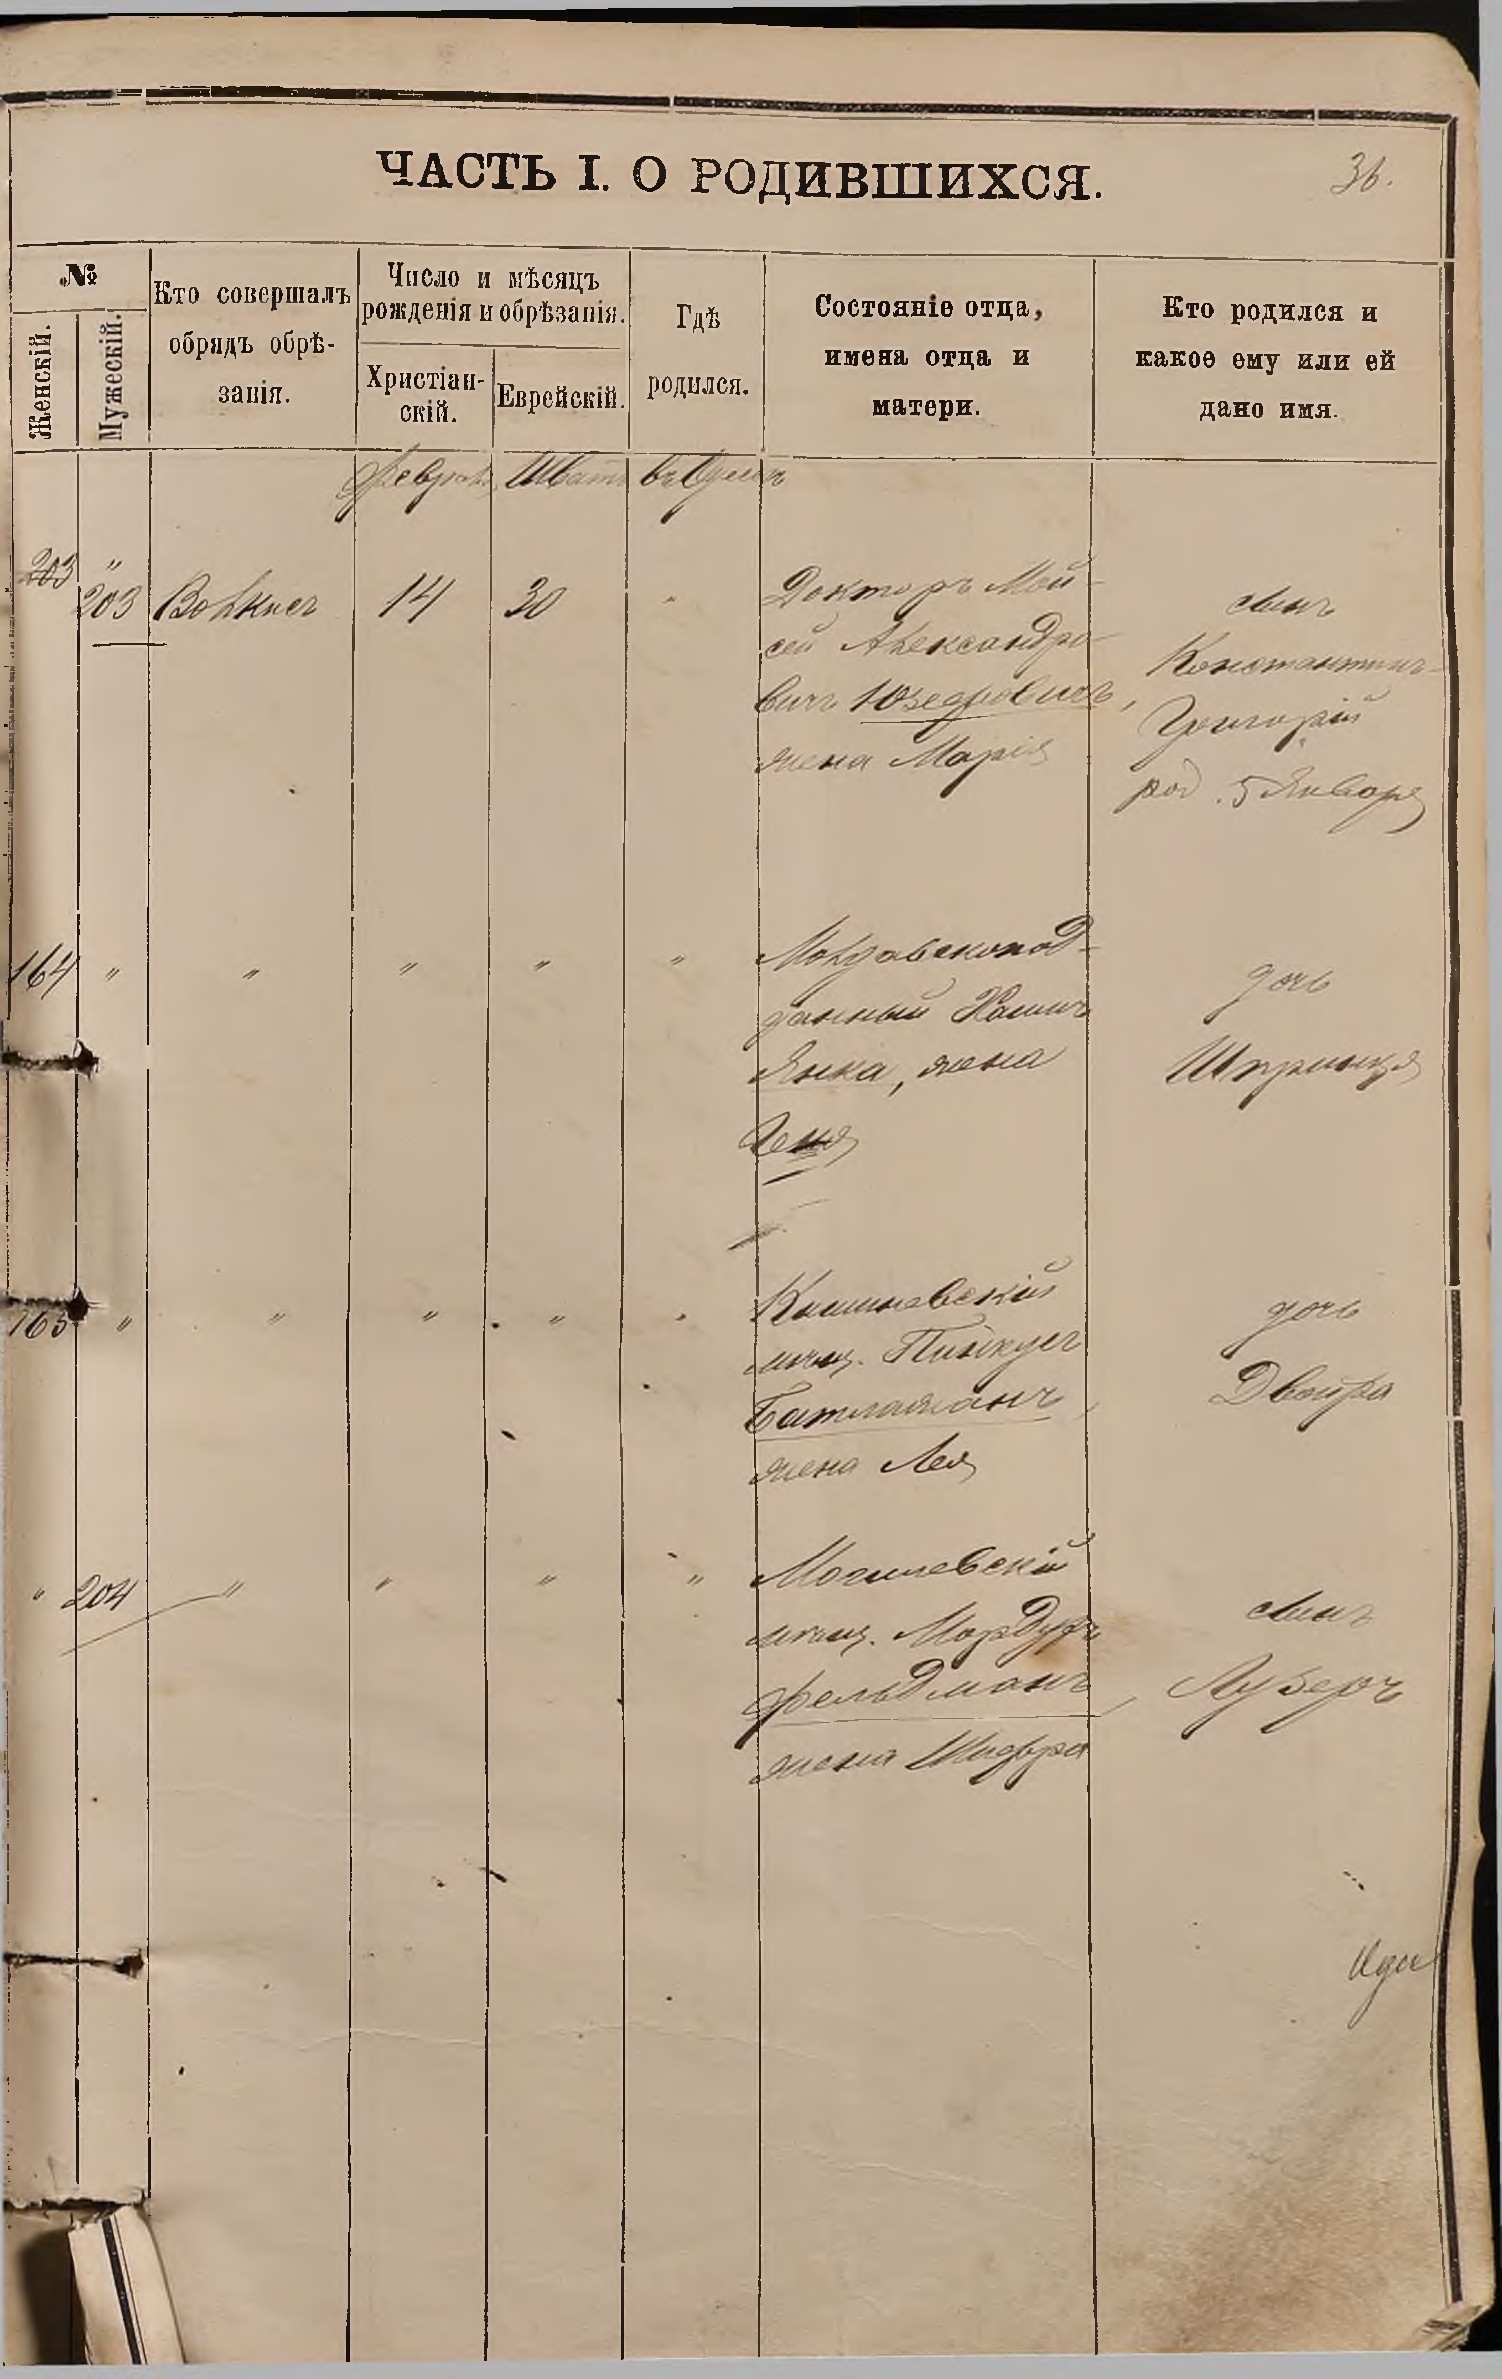 ЧАСТЬ I. О РОДИВШИХСЯ.
36.
№
Женскій.
Мужескій.
Кто совершалъ
обрядъ обрѣ-
занія.
Число и мѣсяцъ
рожденія и обрѣзанія.
Христіан-
скій.
Еврейскій.
Гдѣ
родился.
Состояніе отца,
имена отца и
матери.
Кто родился и
какое ему или ей
дано имя.
Февраль Шватъ
203 "
203 14 30 "
Докторъ Мой-
сей Александро-
вичъ Юзефовичъ,
жена Марія
сынъ
Константинъ-
Григорій
род. 5 Января
164 " " " " "
Молдавскопод-
данный
Янка, жена
Геня
дочь
Шпринця
165 " " " " "
Кишиневскій
мѣщ. Пинкус
жена Лея
дочь
Двойра
" 204 " " " "
Могилевскій
мѣщ. Мордухъ
Фельдманъ,
жена Шифра
сынъ
Лузеръ